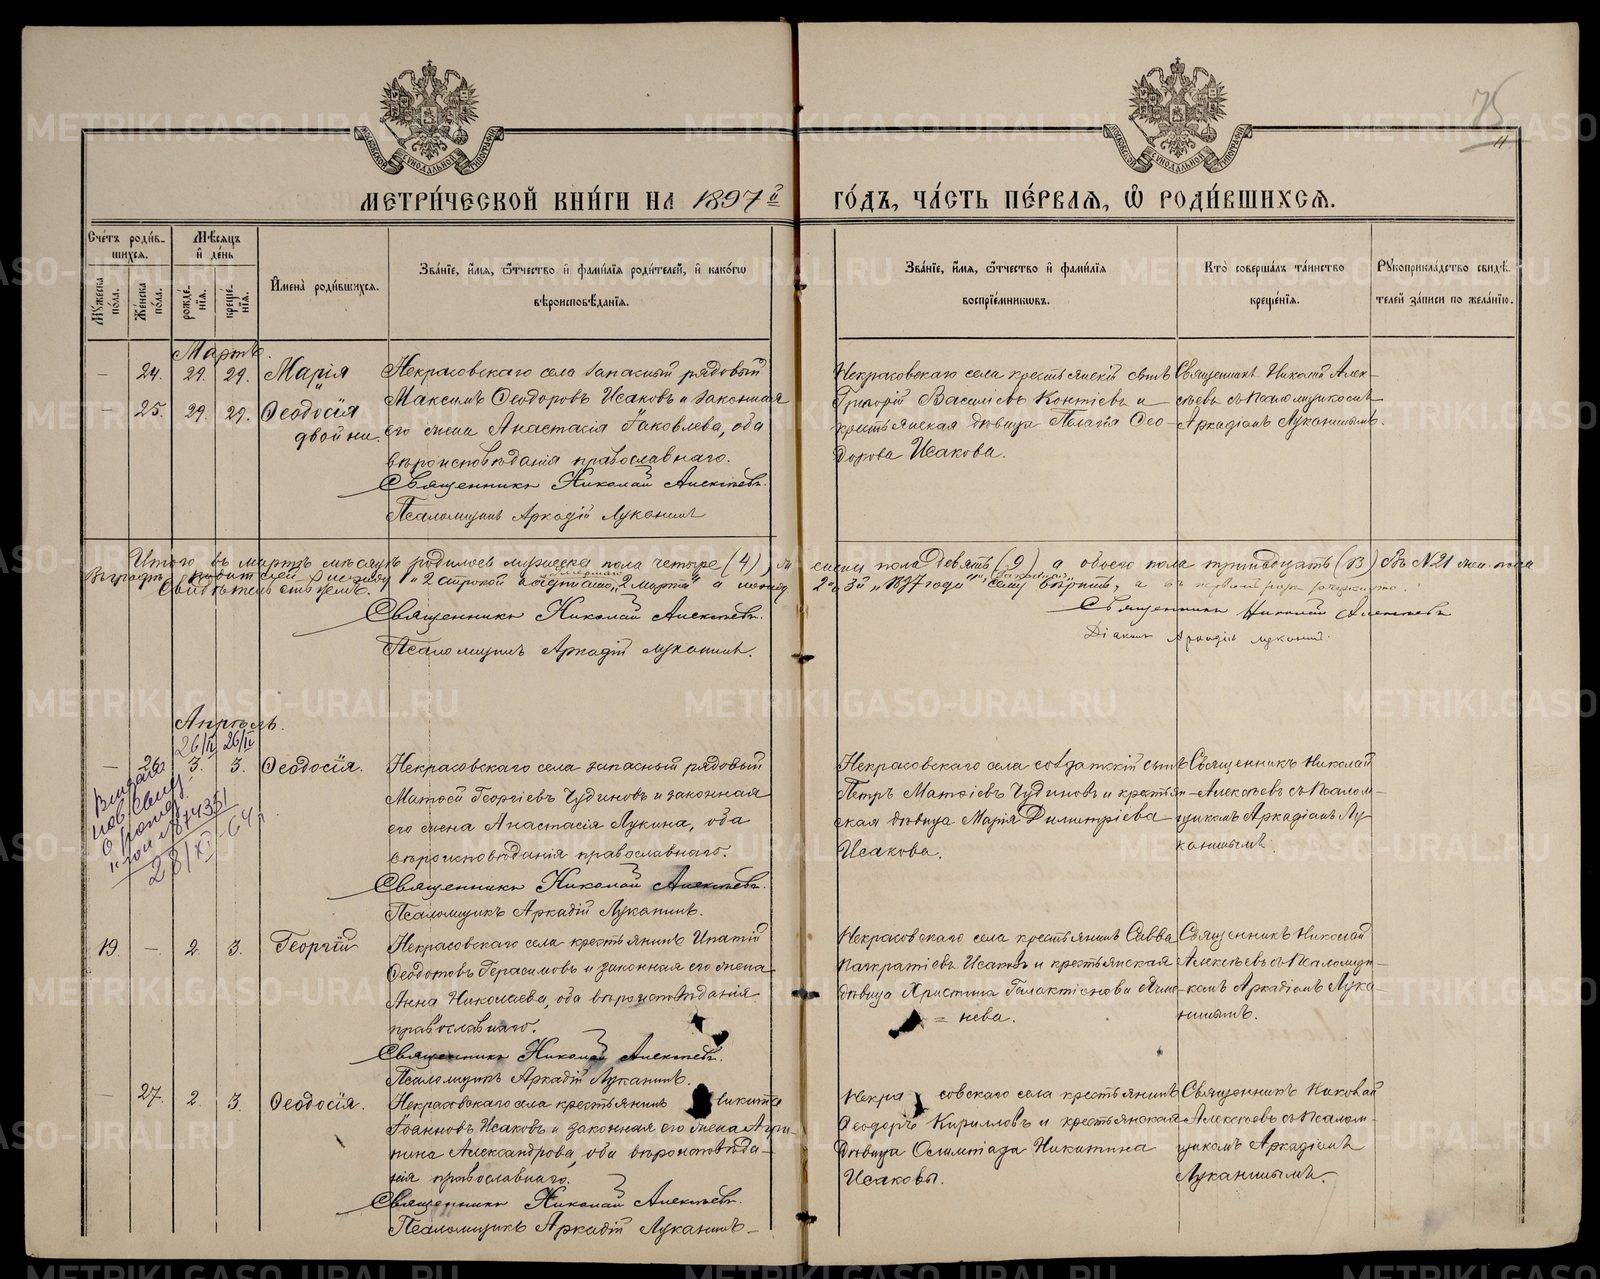 75
11
МЕТРИ́ЧЕСКОЙ КНИ́ГИ НА 1897й ГО́ДЪ, ЧА́СТЬ ПЕ́РВАЯ, Ѡ РОДИ́ВШИХСЯ.
Сче́тъ роди́в-
шихся.
Мѣ́сяцъ
и́ де́нь
Му́жеска по́ла.
Же́нска по́ла.
рожде́-
нїя.
креще́-
нїя.
И́мена̀ роди́вшихся.
Зва́нїе, и́мя, ѻ́тчество и́ фами́лїя роди́телей, и́ како́гѡ
вѣроисповѣ́данїя.
Зва́нїе, и́мя, ѻ́тчество и́ фами́лїя
воспрїе́мникѡвъ.
Кто̀ соверша́лъ та́инство
креще́нїя.
Рꙋкоприкла́дство свидѣ́-
телей за́писи по жела́нїю.
Мартъ.
— 24. 29. 29. Марія
— 25. 29. 29. Ѳеодосія
двойни.
Некрасовскаго села запасный рядовый
Максимъ Ѳеодоровъ Исаковъ и законная
его жена Анастасія Іаковлева, оба
вѣроисповѣданія православнаго.
Священникъ Николай Алексѣевъ.
Псаломщикъ Аркадій Луканинъ
Некрасовскаго села крестьянскій сынъ
Григорій Василіевъ Контіевъ и
крестьянская дѣвица Пелагія Ѳео-
дорова Исакова.
Священникъ Николай Алек-
сѣевъ съ Псаломщикомъ
Аркадіемъ Луканинымъ.
Итого въ мартѣ мѣсяцѣ родилось мужеска пола четыре (4), женска пола девять (9) а обоего пола тринадцать (13)
Священникъ Николай Алексѣевъ.
Псаломщикъ Аркадій Луканинъ.
Священникъ Николай Алексѣевъ
Діаконъ Аркадій Луканинъ.
Апрѣль.
26/IV 26/IV
— 26. 3. 3. Ѳеодосія.
Некрасовскаго села запасный рядовый
Матѳей Георгіевъ Чудиновъ и законная
его жена Анастасія Лукина, оба
вѣроисповѣданія православнаго.
Священникъ Николай Алексѣевъ.
Псаломщикъ Аркадій Луканинъ.
Некрасовскаго села солдатскій сынъ
Петръ Матѳіевъ Чудиновъ и крестьян-
ская дѣвица Марія Димитріева
Исакова.
Священникъ Николай
Алексѣевъ съ Псалом-
щикомъ Аркадіемъ Лу-
канинымъ.
19. — 2. 3. Георгій
Некрасовскаго села крестьянинъ Ипатій
Ѳедотовъ Герасимовъ и законная его жена
Анна Николаева, оба вѣроисповѣданія
православнаго.
Священникъ Николай Алексѣевъ.
Псаломщикъ Аркадій Луканинъ.
Некрасовскаго села крестьянинъ Савва
Панкратіевъ Исаковъ и крестьянская
дѣвица Христина Галактіонова
= нева.
Священникъ Николай
Алексѣевъ съ Псаломщи-
комъ Аркадіемъ Лука-
нинымъ.
— 27. 2. 3. Ѳеодосія.
Некрасовскаго села крестьянинъ Никита
Іоанновъ Исаковъ и законная его жена Агри-
пина Александрова, оба вѣроисповѣда-
нія православнаго.
Священникъ Николай Алексѣевъ.
Псаломщикъ Аркадій Луканинъ
Некрасовскаго села крестьянинъ
Ѳеодоръ Кирилловъ и крестьянская
дѣвица Олимпіада Никитина
Исаковы.
Священникъ Николай
Алексѣевъ съ Псалом-
щикомъ Аркадіемъ
Луканинымъ.
METRIKI.GASO-URAL.RU